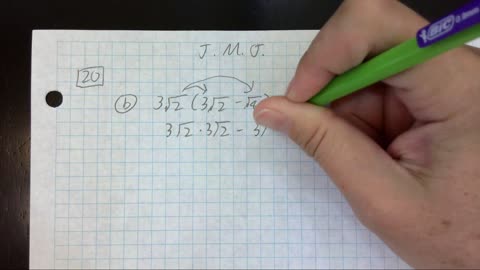 J. M. J.
20
b 3√2 (3√2 - √
3√2 · 3√2 - 3
BIC